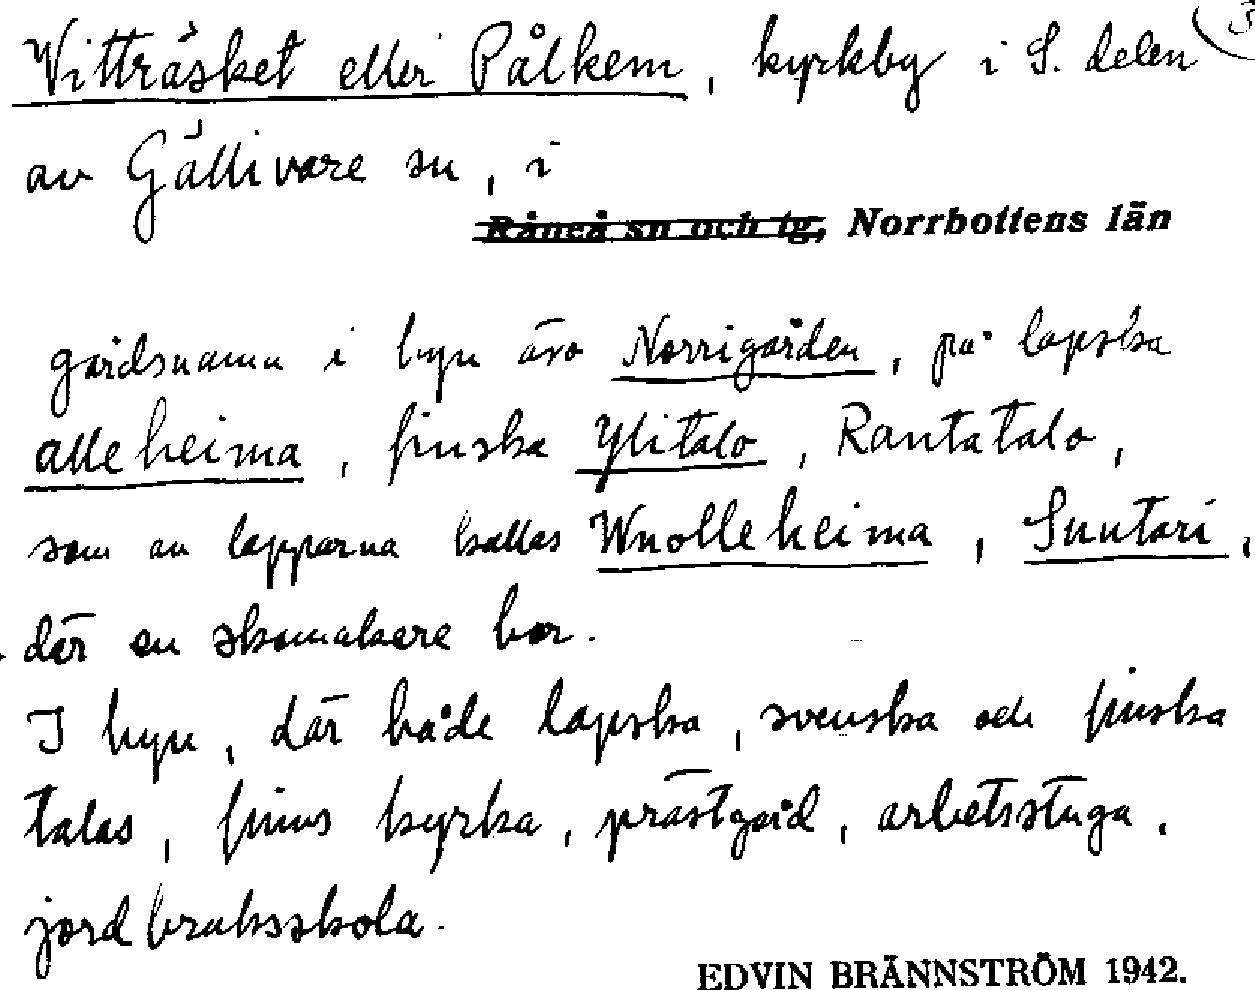 Vitträsket eller Pålkem, kyrkby i S. delen
av Gällivare sn, i
Råneå sn och tg, Norrbottens län
gårdsnamn i byn äro Norrigården, på lapska
alleheima, finska Ylitalo, Rantatalo,
som av lapparna kallas Wuolleheima, Suutari,
där en skomakare bor.
I byn, där både lapska, svenska och finska
talas, finns kyrka, prästgård, arbetsstuga,
jordbruksskola.
EDVIN BRÄNNSTRÖM 1942.